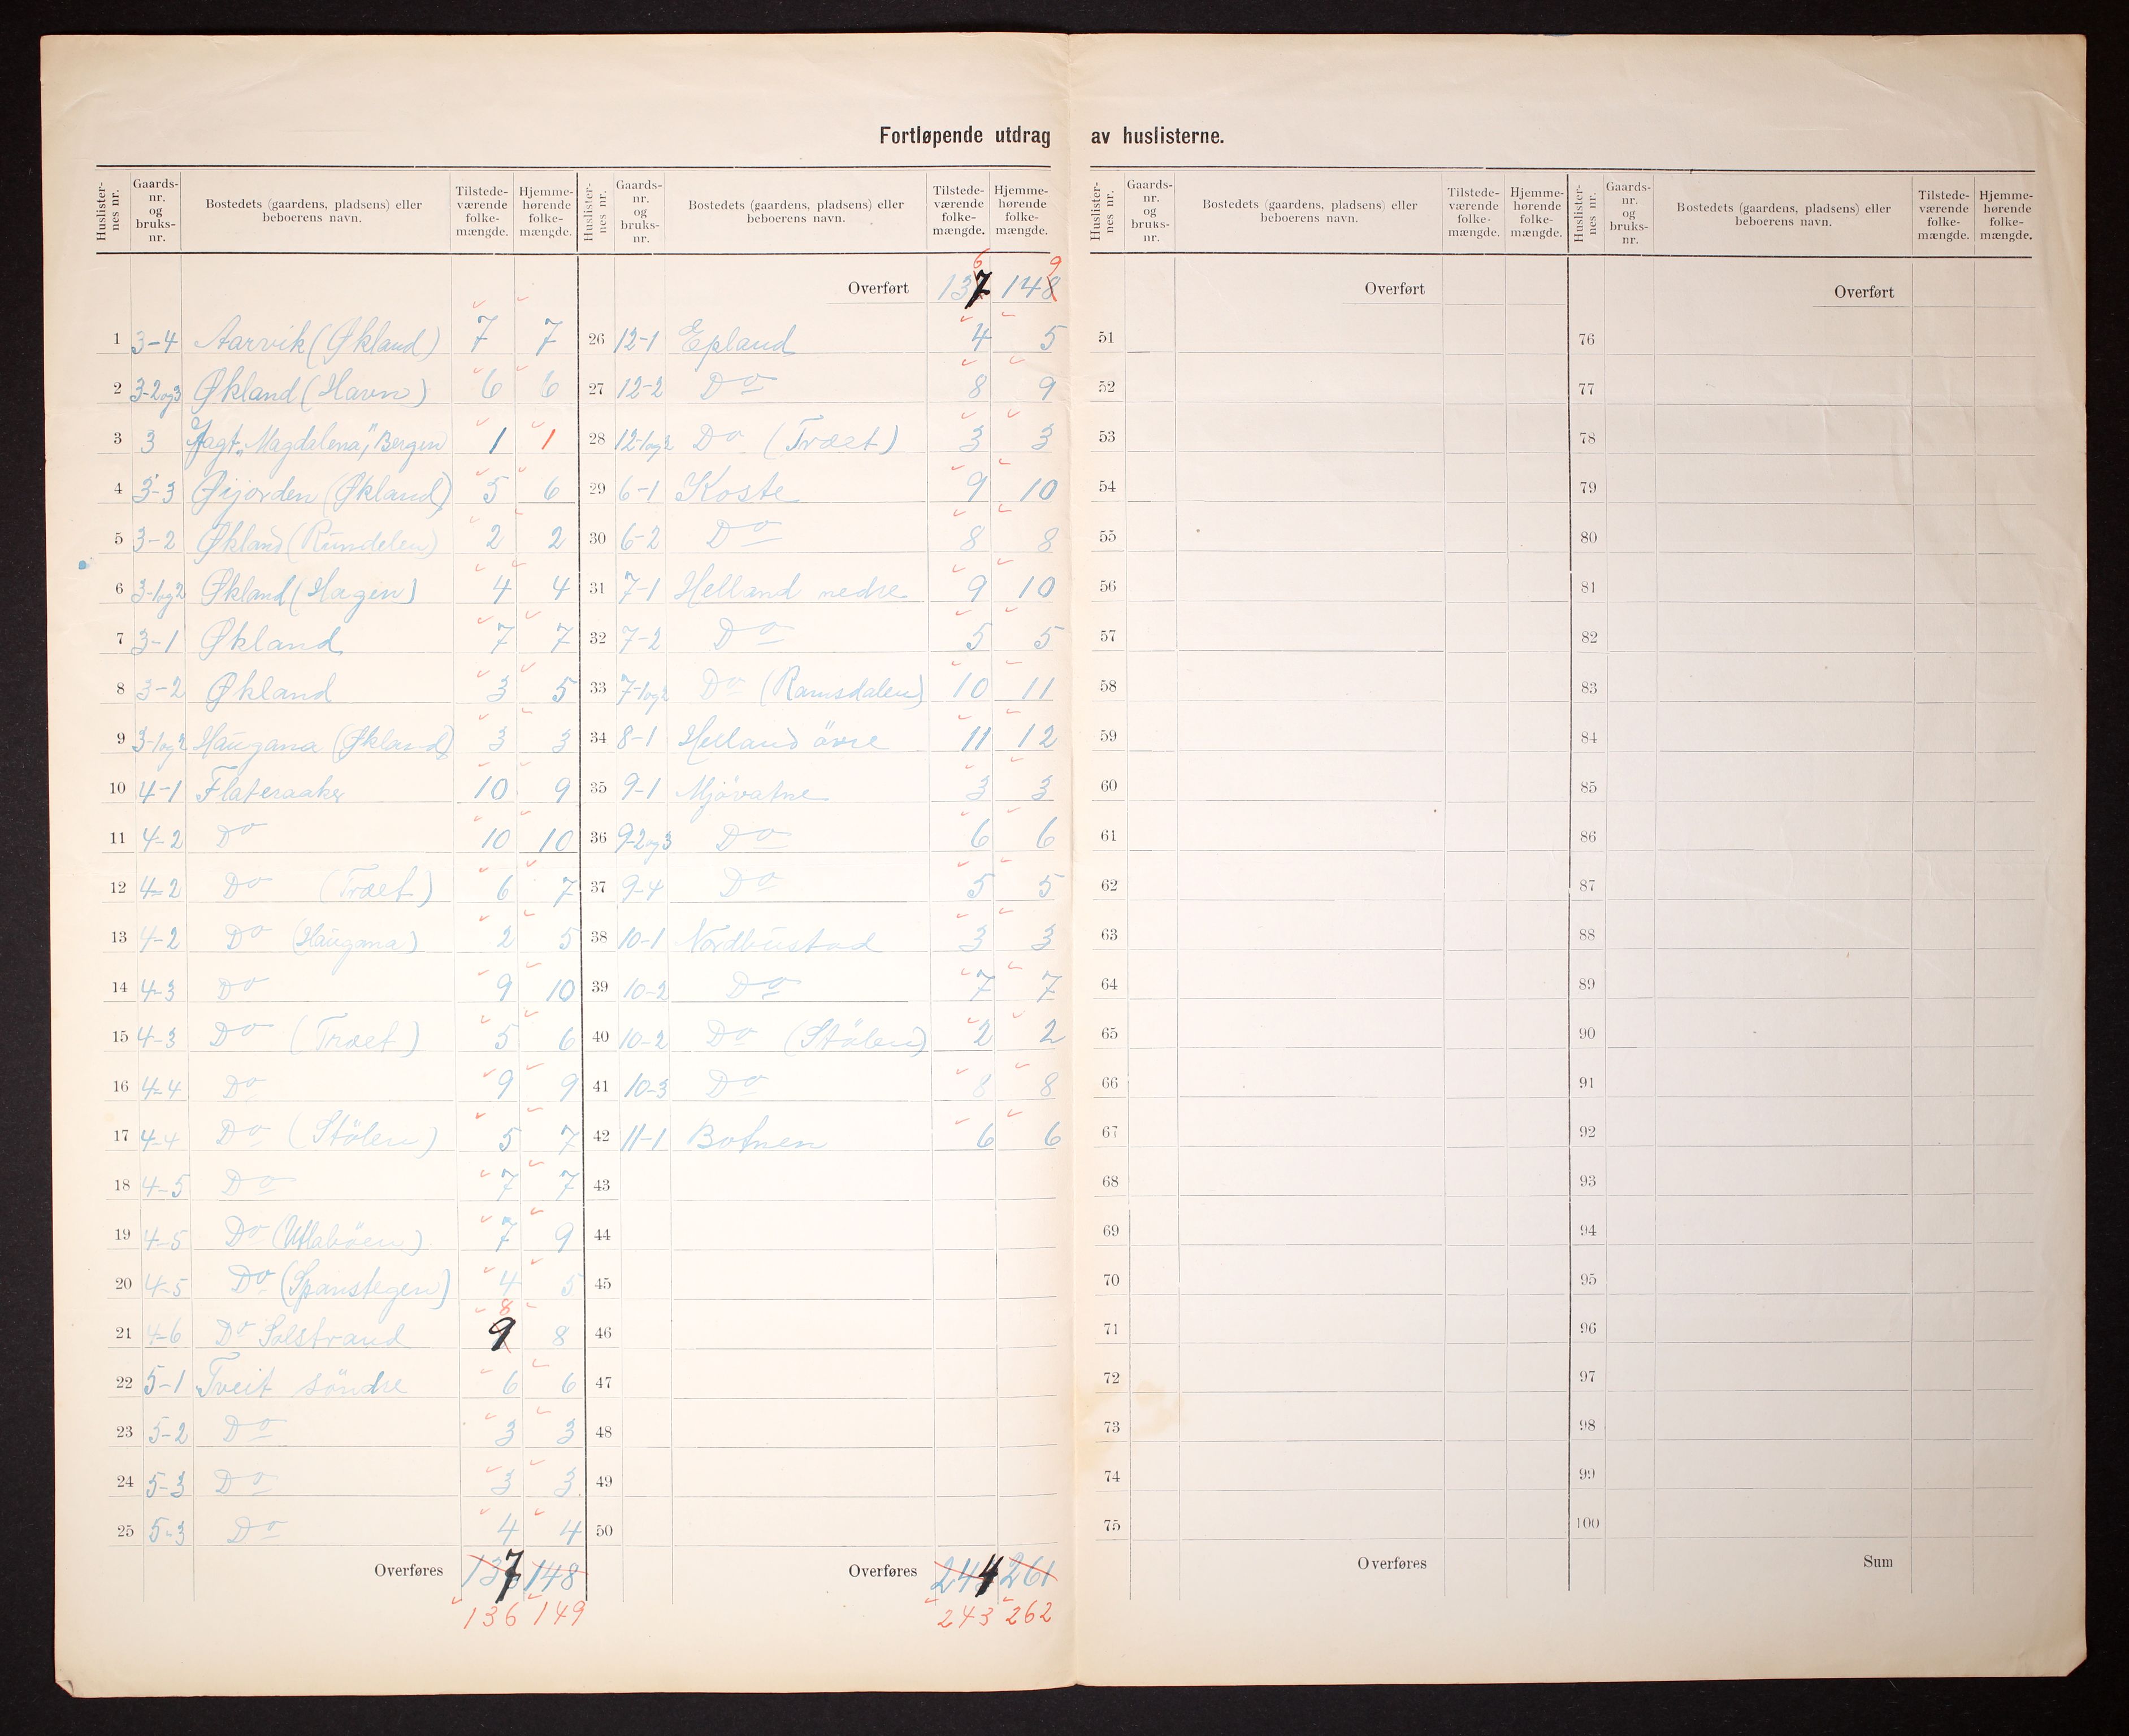 Fortløpende utdrag av huslisterne.
Huslister-nes nr. Gaards-nr. og bruks-nr. Bostedets (gaardens, pladsens) eller beboerens navn. Tilstede-værende folke-mængde. Hjemme-hørende folke-mængde.
1 3-4 Aarvik (Økland) 7 7
2 3-2og3 Økland (Havn) 6 6
3 3 Jagt „Magdalena", Bergen 1 1
4 3-3 Øijorden (Økland) 5 6
5 3-2 Økland (Rundelen) 2 2
6 3-1og2 Økland (Hagen) 4 4
7 3-1 Økland 7 7
8 3-2 Økland 3 5
9 3-1og2 Haugana (Økland) 3 3
10 4-1 Flateraaker 10 9
11 4-2 Do 10 10
12 4-2 Do (Træet) 6 7
13 4-2 Do (Haugana) 2 5
14 4-3 Do 9 10
15 4-3 Do (Træet) 5 6
16 4-4 Do 9 9
17 4-4 Do (Stölen) 5 7
18 4-5 Do 7 7
19 4-5 Do 7 9
20 4-5 Do (Spanstegen) 4 5
21 4-6 Do Solstrand 9 8 8
22 5-1 Tveit söndre 6 6
23 5-2 Do 3 3
24 5-3 Do 3 3
25 5-3 Do 4 4
Overføres 137 148
136 149
Huslister-nes nr. Gaards-nr. og bruks-nr. Bostedets (gaardens, pladsens) eller beboerens navn. Tilstede-værende folke-mængde. Hjemme-hørende folke-mængde.
6 9
Overført 137 148
26 12-1 Epland 4 5
27 12-2 Do 8 9
28 12-1og2 Do (Træet) 3 3
29 6-1 Koste 9 10
30 6-2 Do 8 8
31 7-1 Helland nedre 9 10
32 7-2 Do 5 5
33 7-1og2 Do (Ramsdalen) 10 11
34 8-1 Helland övre 11 12
35 9-1 Mjövatne 3 3
36 9-2og3 Do 6 6
37 9-4 Do 5 5
38 10-1 Nordbustad 3 3
39 10-2 Do 7 7
40 10-2 Do (Stölen) 2 2
41 10-3 Do 8 8
42 11-1 Botnen 6 6
43
44
45
46
47
48
49
50
Overføres 244 261
243 262
Huslister-nes nr. Gaards-nr. og bruks-nr. Bostedets (gaardens, pladsens) eller beboerens navn. Tilstede-værende folke-mængde. Hjemme-hørende folke-mængde.
Overført
51
52
53
54
55
56
57
58
59
60
61
62
63
64
65
66
67
68
69
70
71
72
73
74
75
Overføres
Huslister-nes nr. Gaards-nr. og bruks-nr. Bostedets (gaardens, pladsens) eller beboerens navn. Tilstede-værende folke-mængde. Hjemme-hørende folke-mængde.
Overført
76
77
78
79
80
81
82
83
84
85
86
87
88
89
90
91
92
93
94
95
96
97
98
99
100
Sum